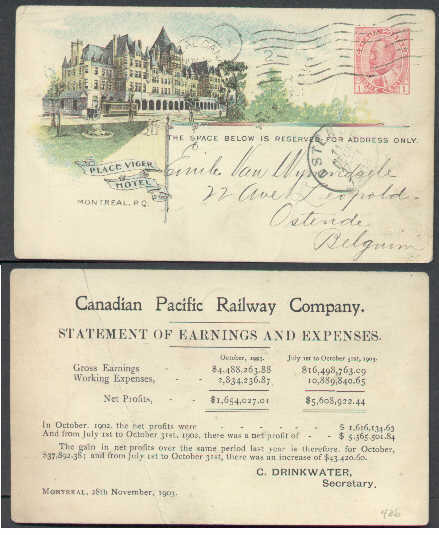 THE SPACE BELOW IS RESERVED FOR ADDRESS ONLY.
PLACE VIGER
HOTEL
MONTREAL, P.Q.
Emile Van
22 Ave Leopold
Ostende
Belguim
Canadian Pacific Railway Company.
STATEMENT OF EARNINGS AND EXPENSES.
October, 1903. July 1st to October 31st, 1903.
Gross Earnings - - $4,488,263.88 $16,498,763.09
Working Expenses, - - 2,834,236.87 10,889,840.65
Net Profits, - - $1,654,027.01 $5,608,922.44
In October, 1902, the net profits were - - - - - - $ 1,616,134.63
And from July 1st to October 31st, 1902, there was a net profit of - - $ 5,565,501.84
The gain in net profits over the same period last year is therefore, for October,
$37,892.38; and from July 1st to October 31st, there was an increase of $43,420.60.
C. DRINKWATER,
Secretary.
MONTREAL, 28th November, 1903.
426